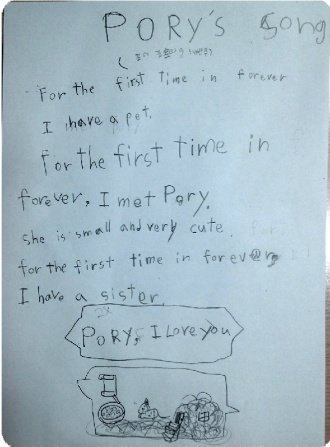 PORY'S Song
For the first Time in forever
I have a pet.
For the first time in
forever, I met Pory.
she is small and very cute.
for the first time in forever,
I have a sister.
2X
PORY, I Love you